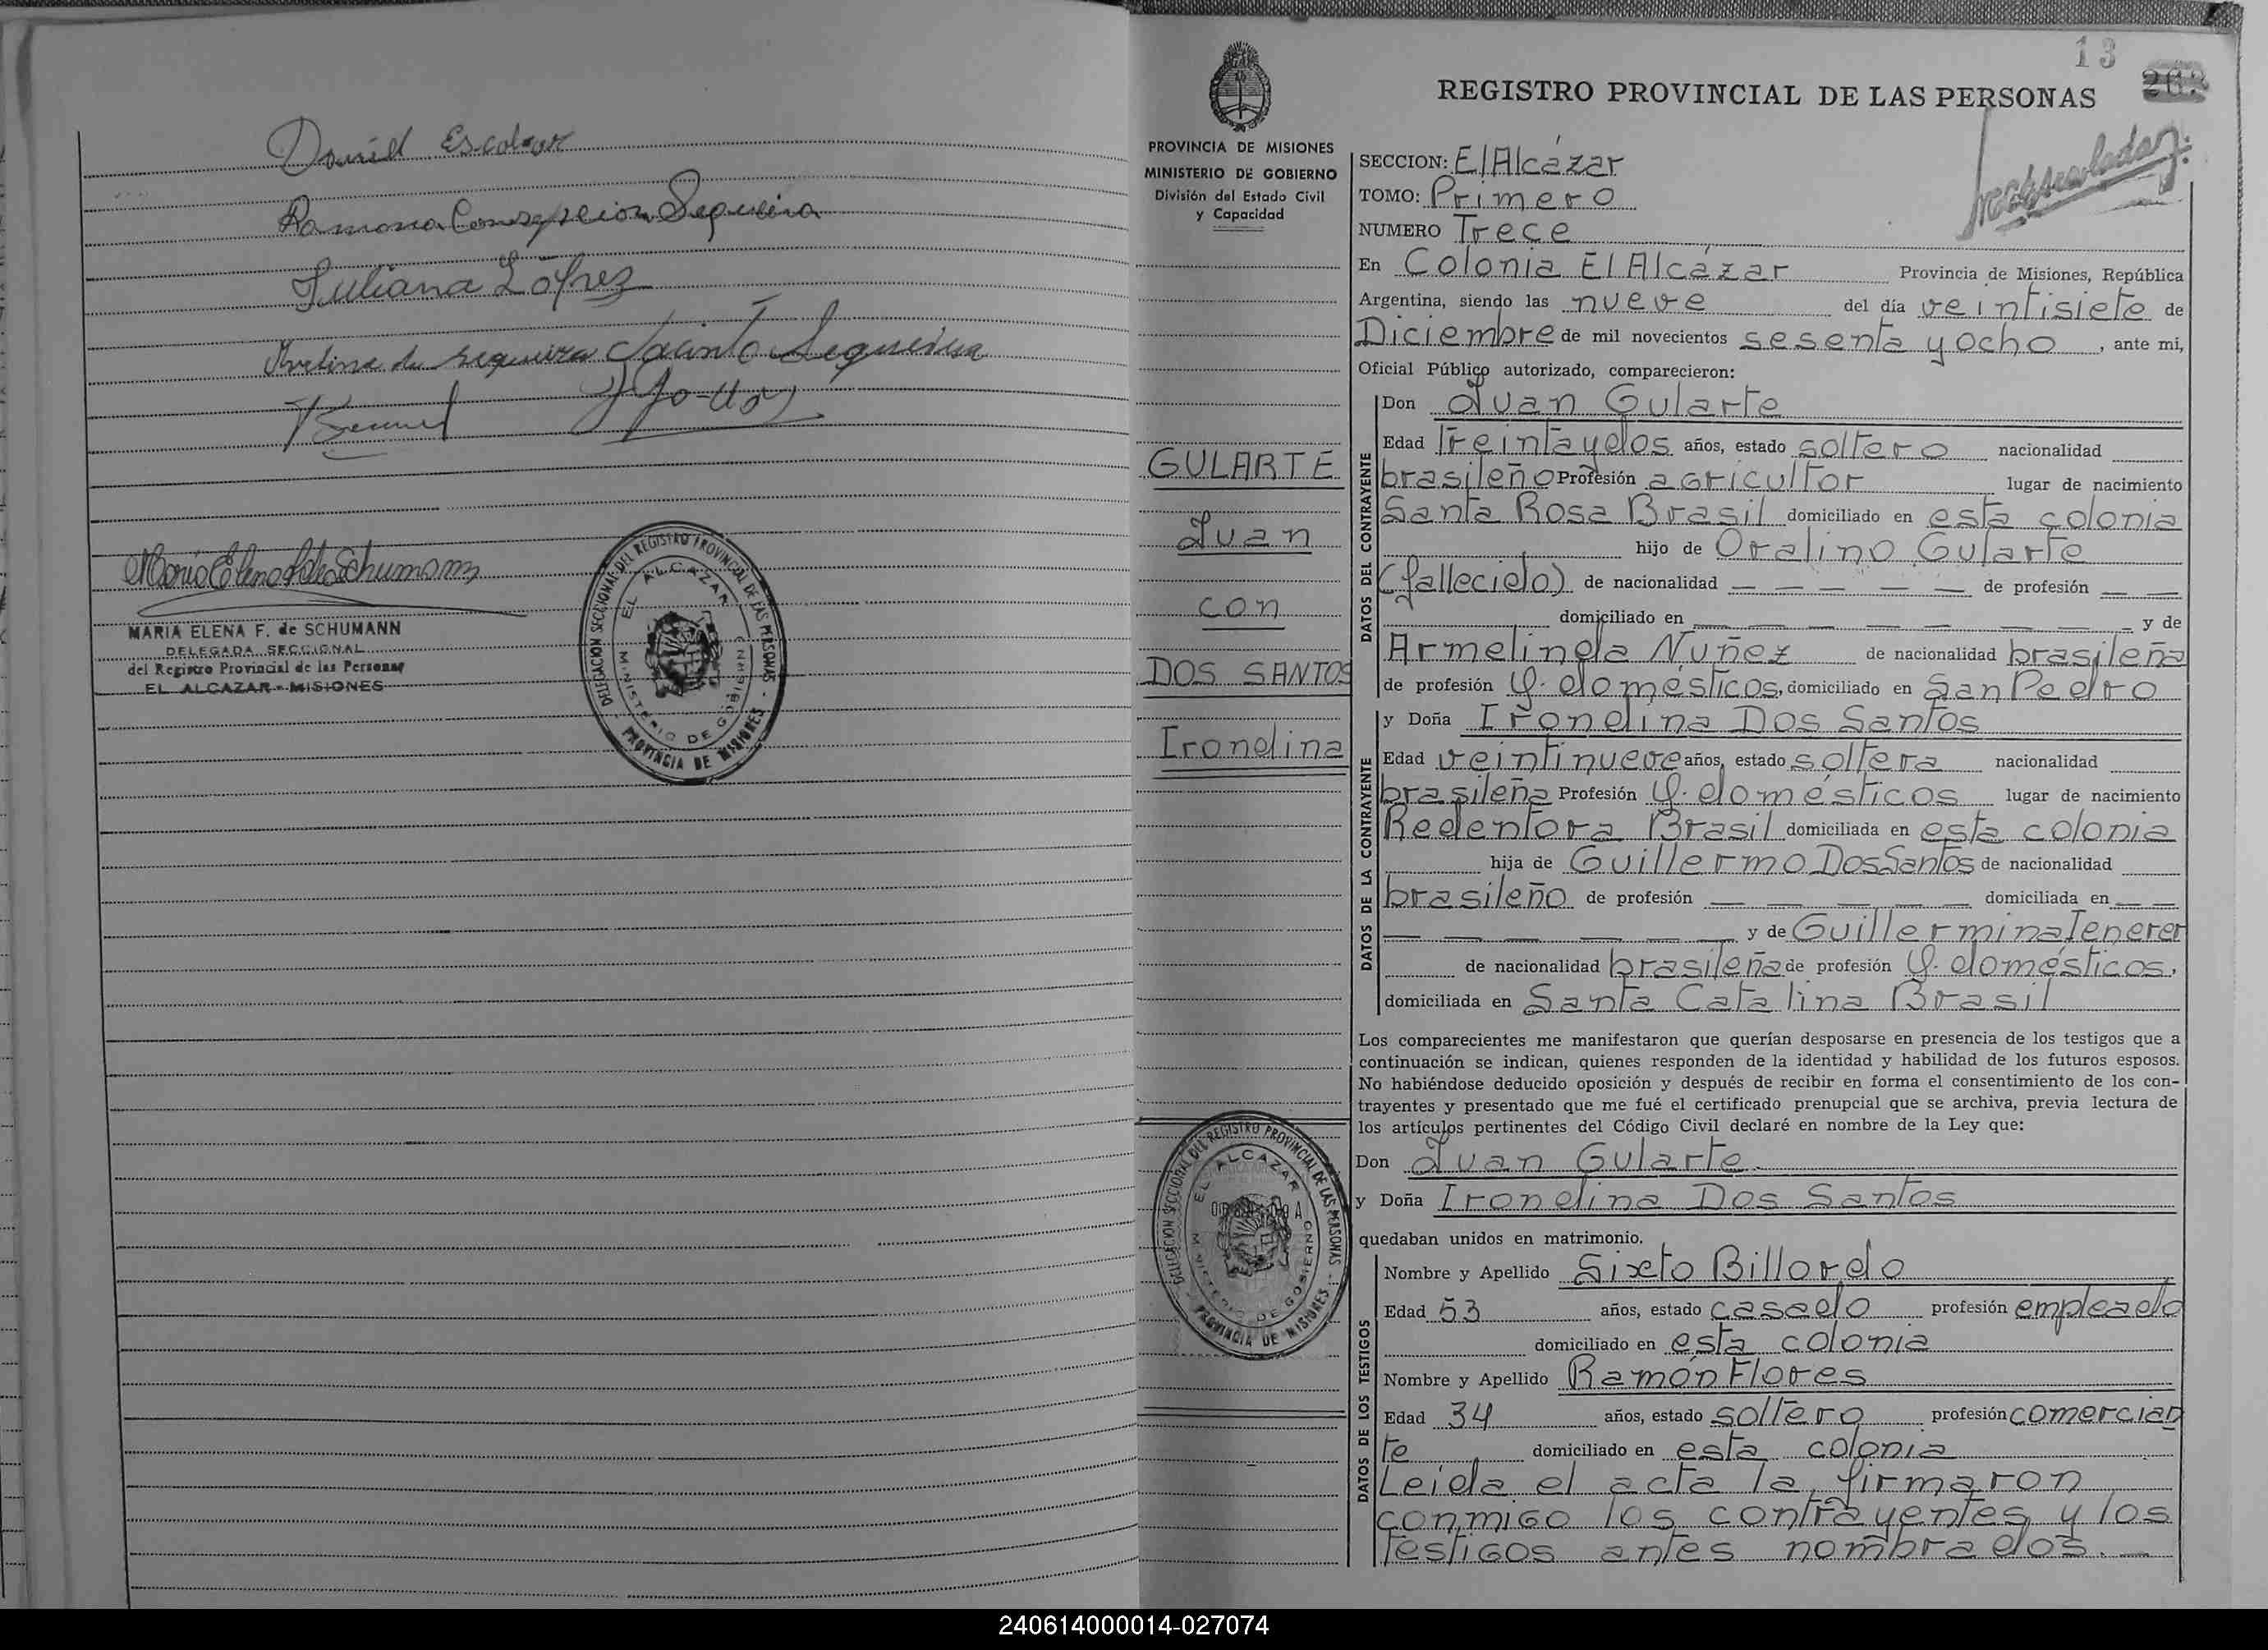 David Escobar
Ramona Concepcion Sequeira
Juliana López
de Sequeira Jacinto Sequeira
Maria Elena F. de Schumann
MARIA ELENA F. de SCHUMANN
DELEGADA SECCIONAL
del Registro Provincial de las Personas
EL ALCAZAR - MISIONES
DELEGACION SECCIONAL DEL REGISTRO PROVINCIAL DE LAS PERSONAS -
PROVINCIA DE MISIONES
EL ALCAZAR
MINISTERIO DE GOBIERNO
13
REGISTRO PROVINCIAL DE LAS PERSONAS
PROVINCIA DE MISIONES
MINISTERIO DE GOBIERNO
División del Estado Civil
y Capacidad
GULARTE
Juan
con
DOS SANTOS
Irondina
DELEGACION SECCIONAL DEL REGISTRO PROVINCIAL DE LAS PERSONAS -
PROVINCIA DE MISIONES
EL ALCAZAR
MINISTERIO DE GOBIERNO
SECCION: El Alcázar
TOMO: Primero
NUMERO Trece
En Colonia El Alcázar Provincia de Misiones, República
Argentina, siendo las nueve del día veintisiete de
Diciembre de mil novecientos sesenta y ocho, ante mi,
Oficial Público autorizado, comparecieron:
DATOS DEL CONTRAYENTE
Don Juan Gularte
Edad treinta y dos años, estado soltero nacionalidad
brasileño Profesión agricultor lugar de nacimiento
Santa Rosa Brasil domiciliado en esta colonia
hijo de Oralino Gularte
(fallecido) de nacionalidad — — — — — de profesión — —
domiciliado en — — — — — — — y de
Armelinda Nuñez de nacionalidad brasileña
de profesión q. domésticos, domiciliado en San Pedro
DATOS DE LA CONTRAYENTE
y Doña Irondina Dos Santos
Edad veintinueve años, estado soltera nacionalidad
brasileña Profesión q. domésticos lugar de nacimiento
Redentora Brasil domiciliada en esta colonia
hija de Guillermo Dos Santos de nacionalidad
brasileño de profesión — — — — — domiciliada en — —
— — — — — — y de Guillermina Tenerer
de nacionalidad brasileña de profesión q. domésticos,
domiciliada en Santa Catalina Brasil
Los comparecientes me manifestaron que querían desposarse en presencia de los testigos que a
continuación se indican, quienes responden de la identidad y habilidad de los futuros esposos.
No habiéndose deducido oposición y después de recibir en forma el consentimiento de los con-
trayentes y presentado que me fué el certificado prenupcial que se archiva, previa lectura de
los artículos pertinentes del Código Civil declaré en nombre de la Ley que:
Don Juan Gularte.
y Doña Irondina Dos Santos
quedaban unidos en matrimonio.
DATOS DE LOS TESTIGOS
Nombre y Apellido Sixto Billordo
Edad 53 años, estado casado profesión empleado
domiciliado en esta colonia
Nombre y Apellido Ramón Flores
Edad 34 años, estado soltero profesión comercian
te domiciliado en esta colonia
Leida el acta la firmaron
conmigo los contrayentes y los
testigos antes nombrados. —
240614000014-027074